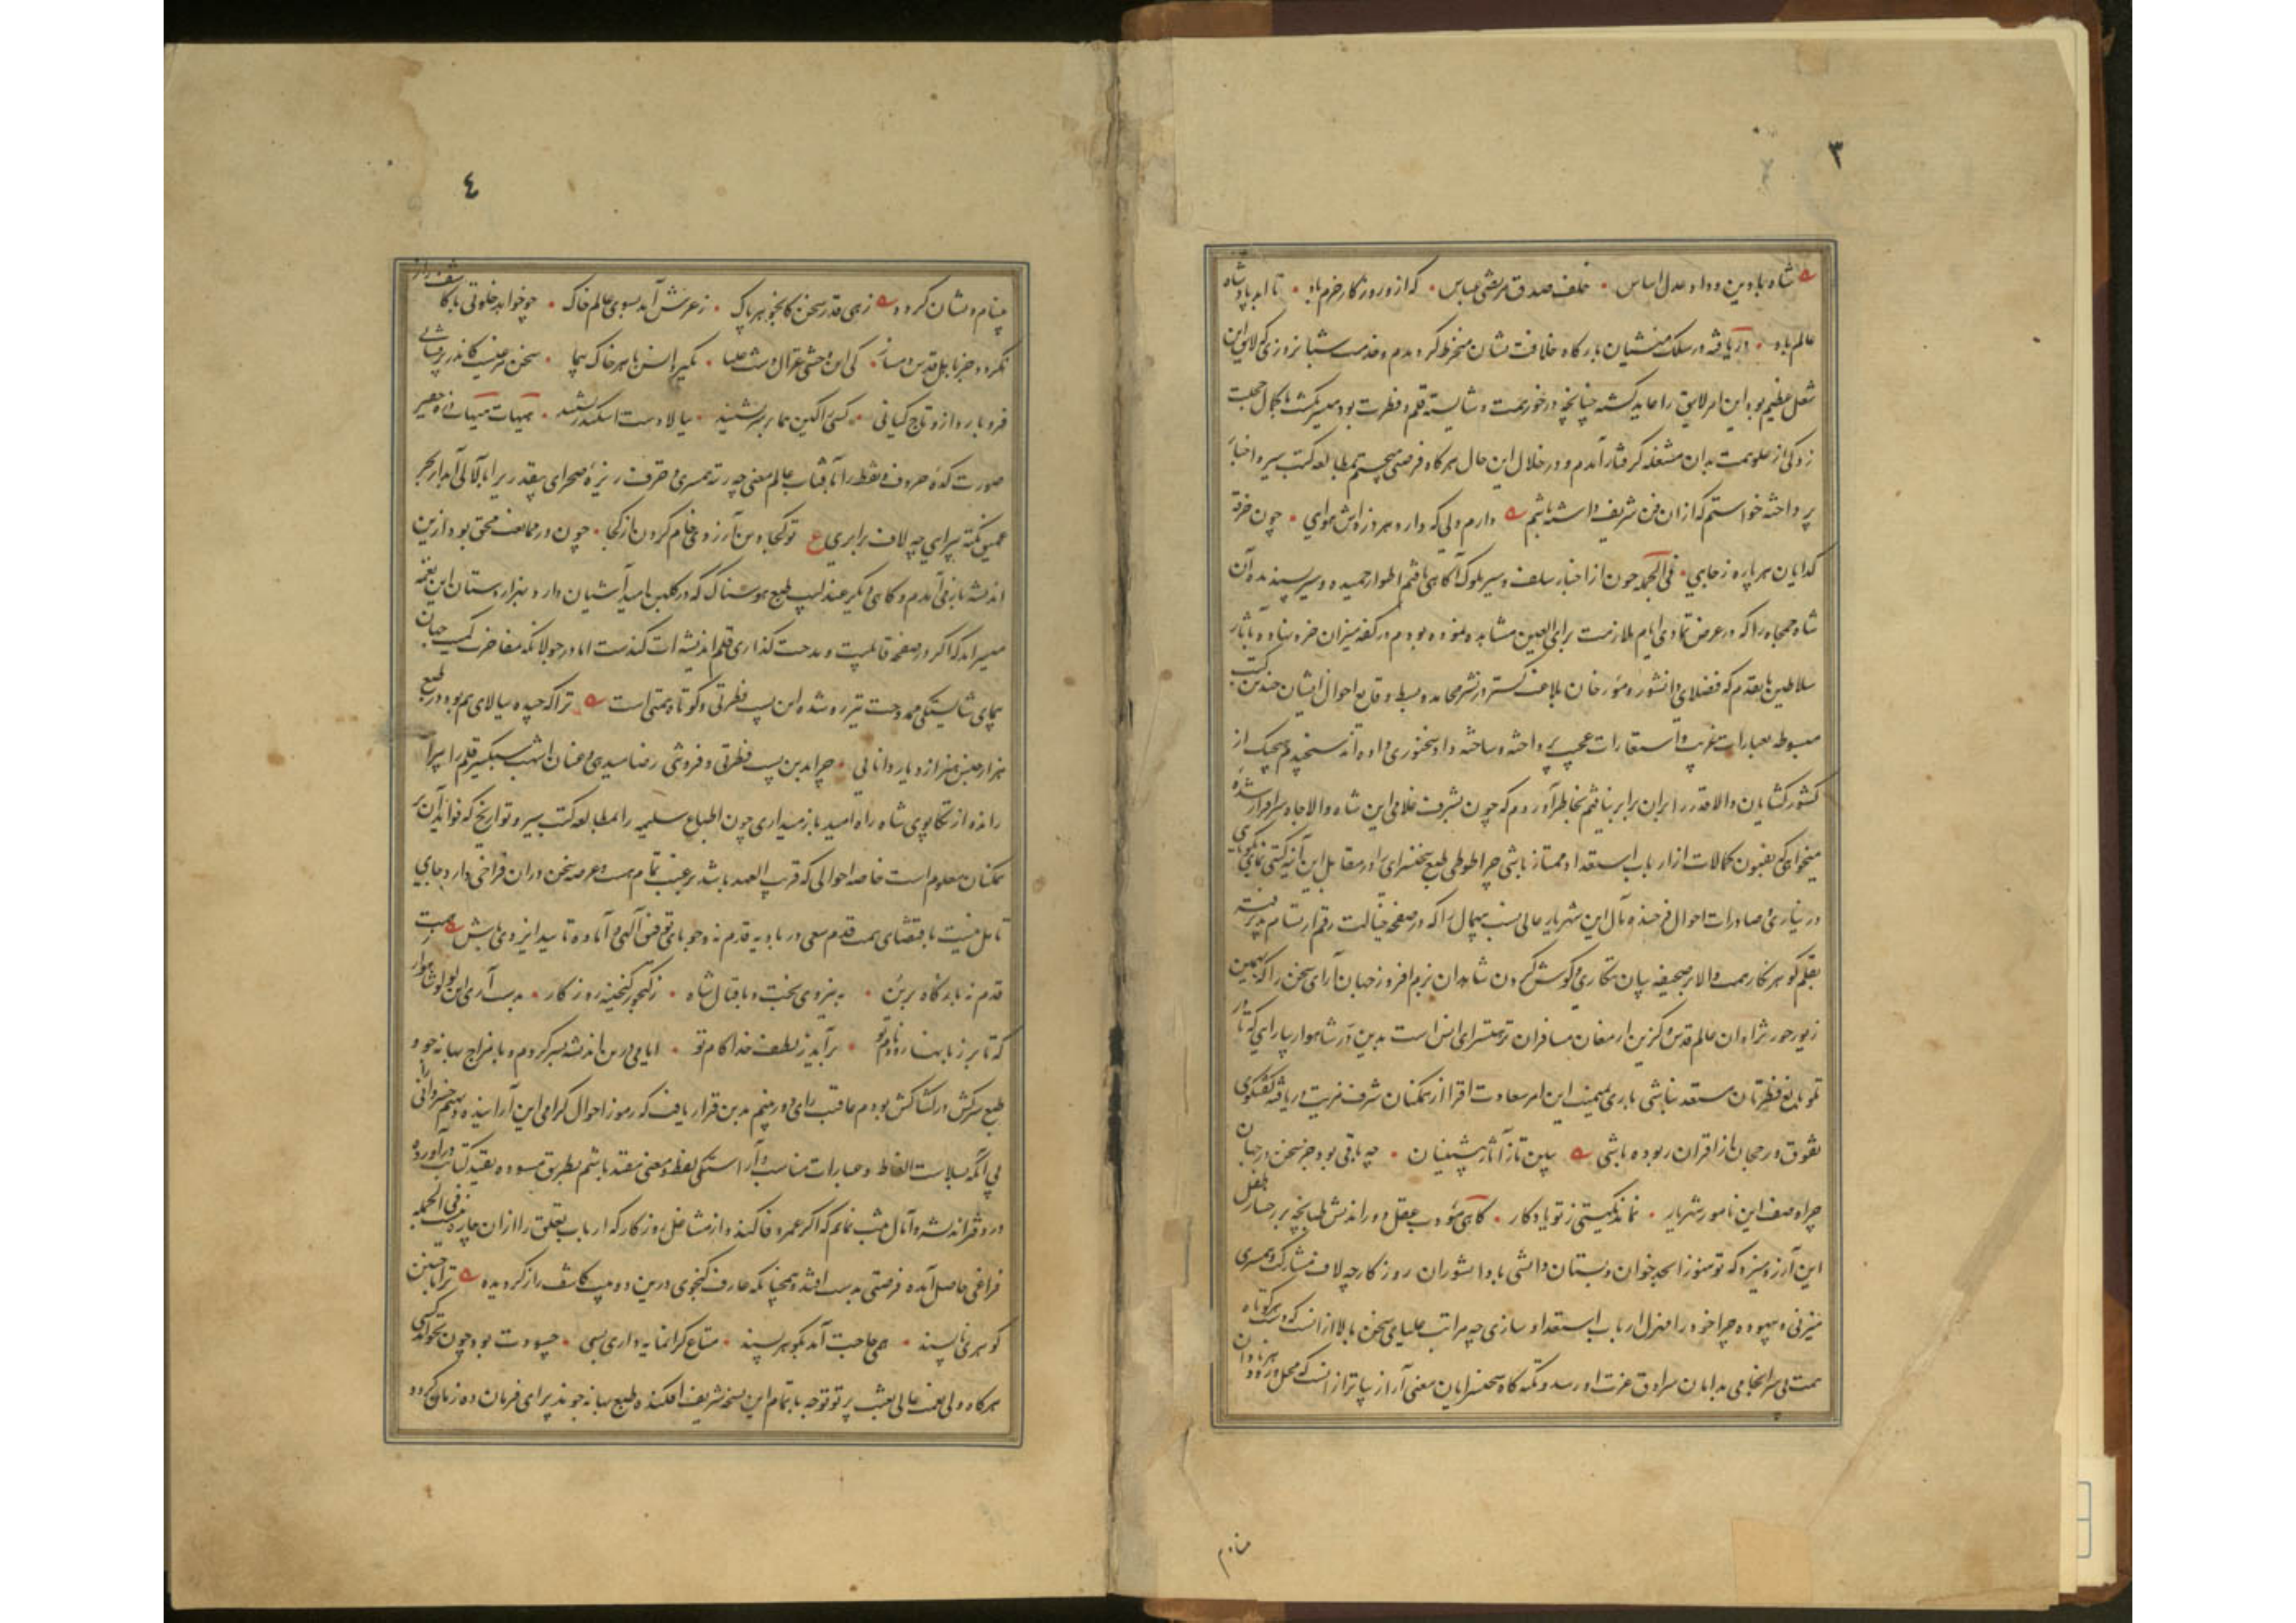 ۳
شاه با دین و داد و عدل اساس • خلف صدق مرتضی عباس • که ازو روزگار خرم باد • تا ابد پادشاه
عالم باد • دریافته در سلک منشیان بارگاه خلافت نشان منخرط گردیدم و خدمت شبانروزی که لایق این
شغل عظیم بود این امر لایق را عاید گشته چنانچه در خور همت و شایسته قلم و فطرت بود میسر گشت
از علو همت بدان مشغله گرفتار آمدم و در خلال این حال هرگاه فرصتی می‌جستم بمطالعه کتب سیر و اخبار
پرداخته خواستم که ازان فن شریف داشته باشم دارم دلی که دارد هر ذره‌اش هوایی • چون خرقه
گدایان هر پاره ز جایی • فی الجمله چون از اخبار سلف و سیر ملوک آگاهی یافتم اطوار حمیده و سیر پسندیده آن
شاه جمجاه را که در عرض تمادی ایام ملازمت برای العین مشاهده نموده بودم در کفه میزان خرد نهاده با آثار
سلاطین ماتقدم که فضلای دانشور و مورخان بلاغت گستر در نشر محامد و بسط وقایع احوال ایشان چندین کتب
مبسوطه بعبارات غریب و استعارات عجیب پرداخته و ساخته داد سخنوری داده‌اند سنجیدم هیچیک از
کشورگشایان والاقدر را بران برابر نیافتم بخاطر آوردم که چون بشرف غلامی این شاه والاجاه سرافراز شده
میخواهی که بفنون کمالات از ارباب استعداد ممتاز باشی چرا طوطی طبع سخنسرای را در مقابل این آئینه گیتی نمای
در نیاری و صادرات احوال فرخنده مآل این شهریار عالی نسب بیهمال را که در صفحه خیالت رقم ارتسام پذیرفته
بقلم گوهرنگار همت والا بر صحیفه بیان ننگاری و گوش گردن شاهدان بزم افروز جهان آرای سخن را که بهین
زیور حور نژادان عالم قدس و گزین ارمغان مسافران نزهتسرای انس است بدین در شاهوار نیارایی که تا در
فطرتان مستعد نباشی باری بمیمنت این امر سعادت افزا از ممکنان شرف مزیت دریافته گفتگوی
تفوق و رجحان از اقران ربوده باشی ببین تا ز آثار پیشینیان • چه باقی بود جز سخن در جهان
چرا وصف این نامور شهریار • نماند بگیتی ز تو یادگار • گاهی مؤدب عقل دوراندیش طبانچه بر رخسار طفل
این آرزو میزد که تو هنوز ابجد خوان دبستان دانشی با دانشوران روزگار چه لاف مشارکت و همسری
میزنی و بیهوده چرا خود را همزل ارباب استعداد سازی چه مراتب علیای سخن بالاتر از آنست که دست هر کوتاه
همت بی سرانجامی بدامان سرادق عزت او رسد و تکه گاه سخنسرایان معنی آرا ازان برتر از انست که محل ورود هر نادان
منادم
٤
بینام و نشان گردد زهی قدر سخن کان جوهر پاک • ز عرش آمد بسوی عالم خاک • چو خواهد خلوتی با کاشف راز
نگردد جز با بیل قدس دمساز • کی این وحشی غزال • نگیرد انس با هر خاک پیما • سخن مرغیست کاندر پرفشانی
فرو بارد ازو تاج کیانی • کسی را کین هما بر سر نشیند • ببالا دست اسکندر نشیند • هیهات هیهات ذره حقیر
صورت کده حروف و نقط را با آفتاب عالم معنی چه رتبه همسری و خزف ریزه صحرای بیقدری را با لآلی آبدار بحر
عمیق نکته پیرایی چه لاف برابری ع تو کجا وین آرزوی خام کردن از کجا • چون در معارف محق بود ازین
اندیشه باز می‌آمدم و گاهی دیگر عندلیب طبع هوسناک که در گلبن امید آشیان دارد هزار دستان این نغمه
میسراید که اگر در صفحه قابلیت و مدحت گذاری قلم اندیشه‌ات کندست اما در جولانگه مفاخرت کمیت جهان
پیمای شایستگی ممدوحت تیزرو شده این پست فطرتی و کوتاه همتی است ترا که چیده ببالای هم بود در طبع
هزار جنس هنر از دیار دانایی • چرا بدین پست فطرتی و فروشی رضا میدهی و عنان اشهب سبکسیر قلم را بیراه
رانده از تکاپوی شاه راه امید باز میداری چون اطباع سلیمه را بمطالعه کتب سیر و تواریخ که فواید آن بر
همگنان معلوم است خاصه احوالی که قریب العهد باشد رغبت تمام هست و عرصه سخن دران فراخی دارد و جای
تامل نیست باقتضای همت قدم سعی در بادیه قدم نه و جویای توفیق آلهی و آماده تایید ایزدی باش ز همت
قدم نه بارگاه برین • به نیروی بخت و باقبال شاه • ز گنجور گنجینه روزگار • بدست آری این لولو شاهوار
که تا بر زبانها رود نام تو • برآید ز لطف خدا کام تو • ایامی درین اندیشه بسر کردم و با مزاج بهانه جو و
طبع سرکش در کشاکش بودم عاقبت رای دوربینم بدین قرار یافت که رموز احوال گرامی این آراینده دیهیم خسروانی را
بی آنکه بسلاست الفاظ و عبارات مناسب و آراستگی لفظ و معنی مقید باشم بطریق مسوده بقید کتابت درآورده
در دفتر اندیشه و آمال ثبت نمایم که اگر عمر وفا کند و از مشاغل روزگار که ارباب تعلق را ازان چاره نیست فی الجمله
فراغی حاصل آمده فرصتی بدست افتد و همچنانکه عارف گنجوی درین دو بیت کاشف راز گردیده ترا با چنین
گوهر ناپسند • چه حاجت آید بگوهر پسند • متاع گرانمایه داری بسی • چه سودت بود چون نخواهد کسی
هرگاه ولی نعمت عالی پرتو توجه باتمام این نسخه شریف افکنده طبع بهانه جو پذیرای فرمان ده زمان گردد